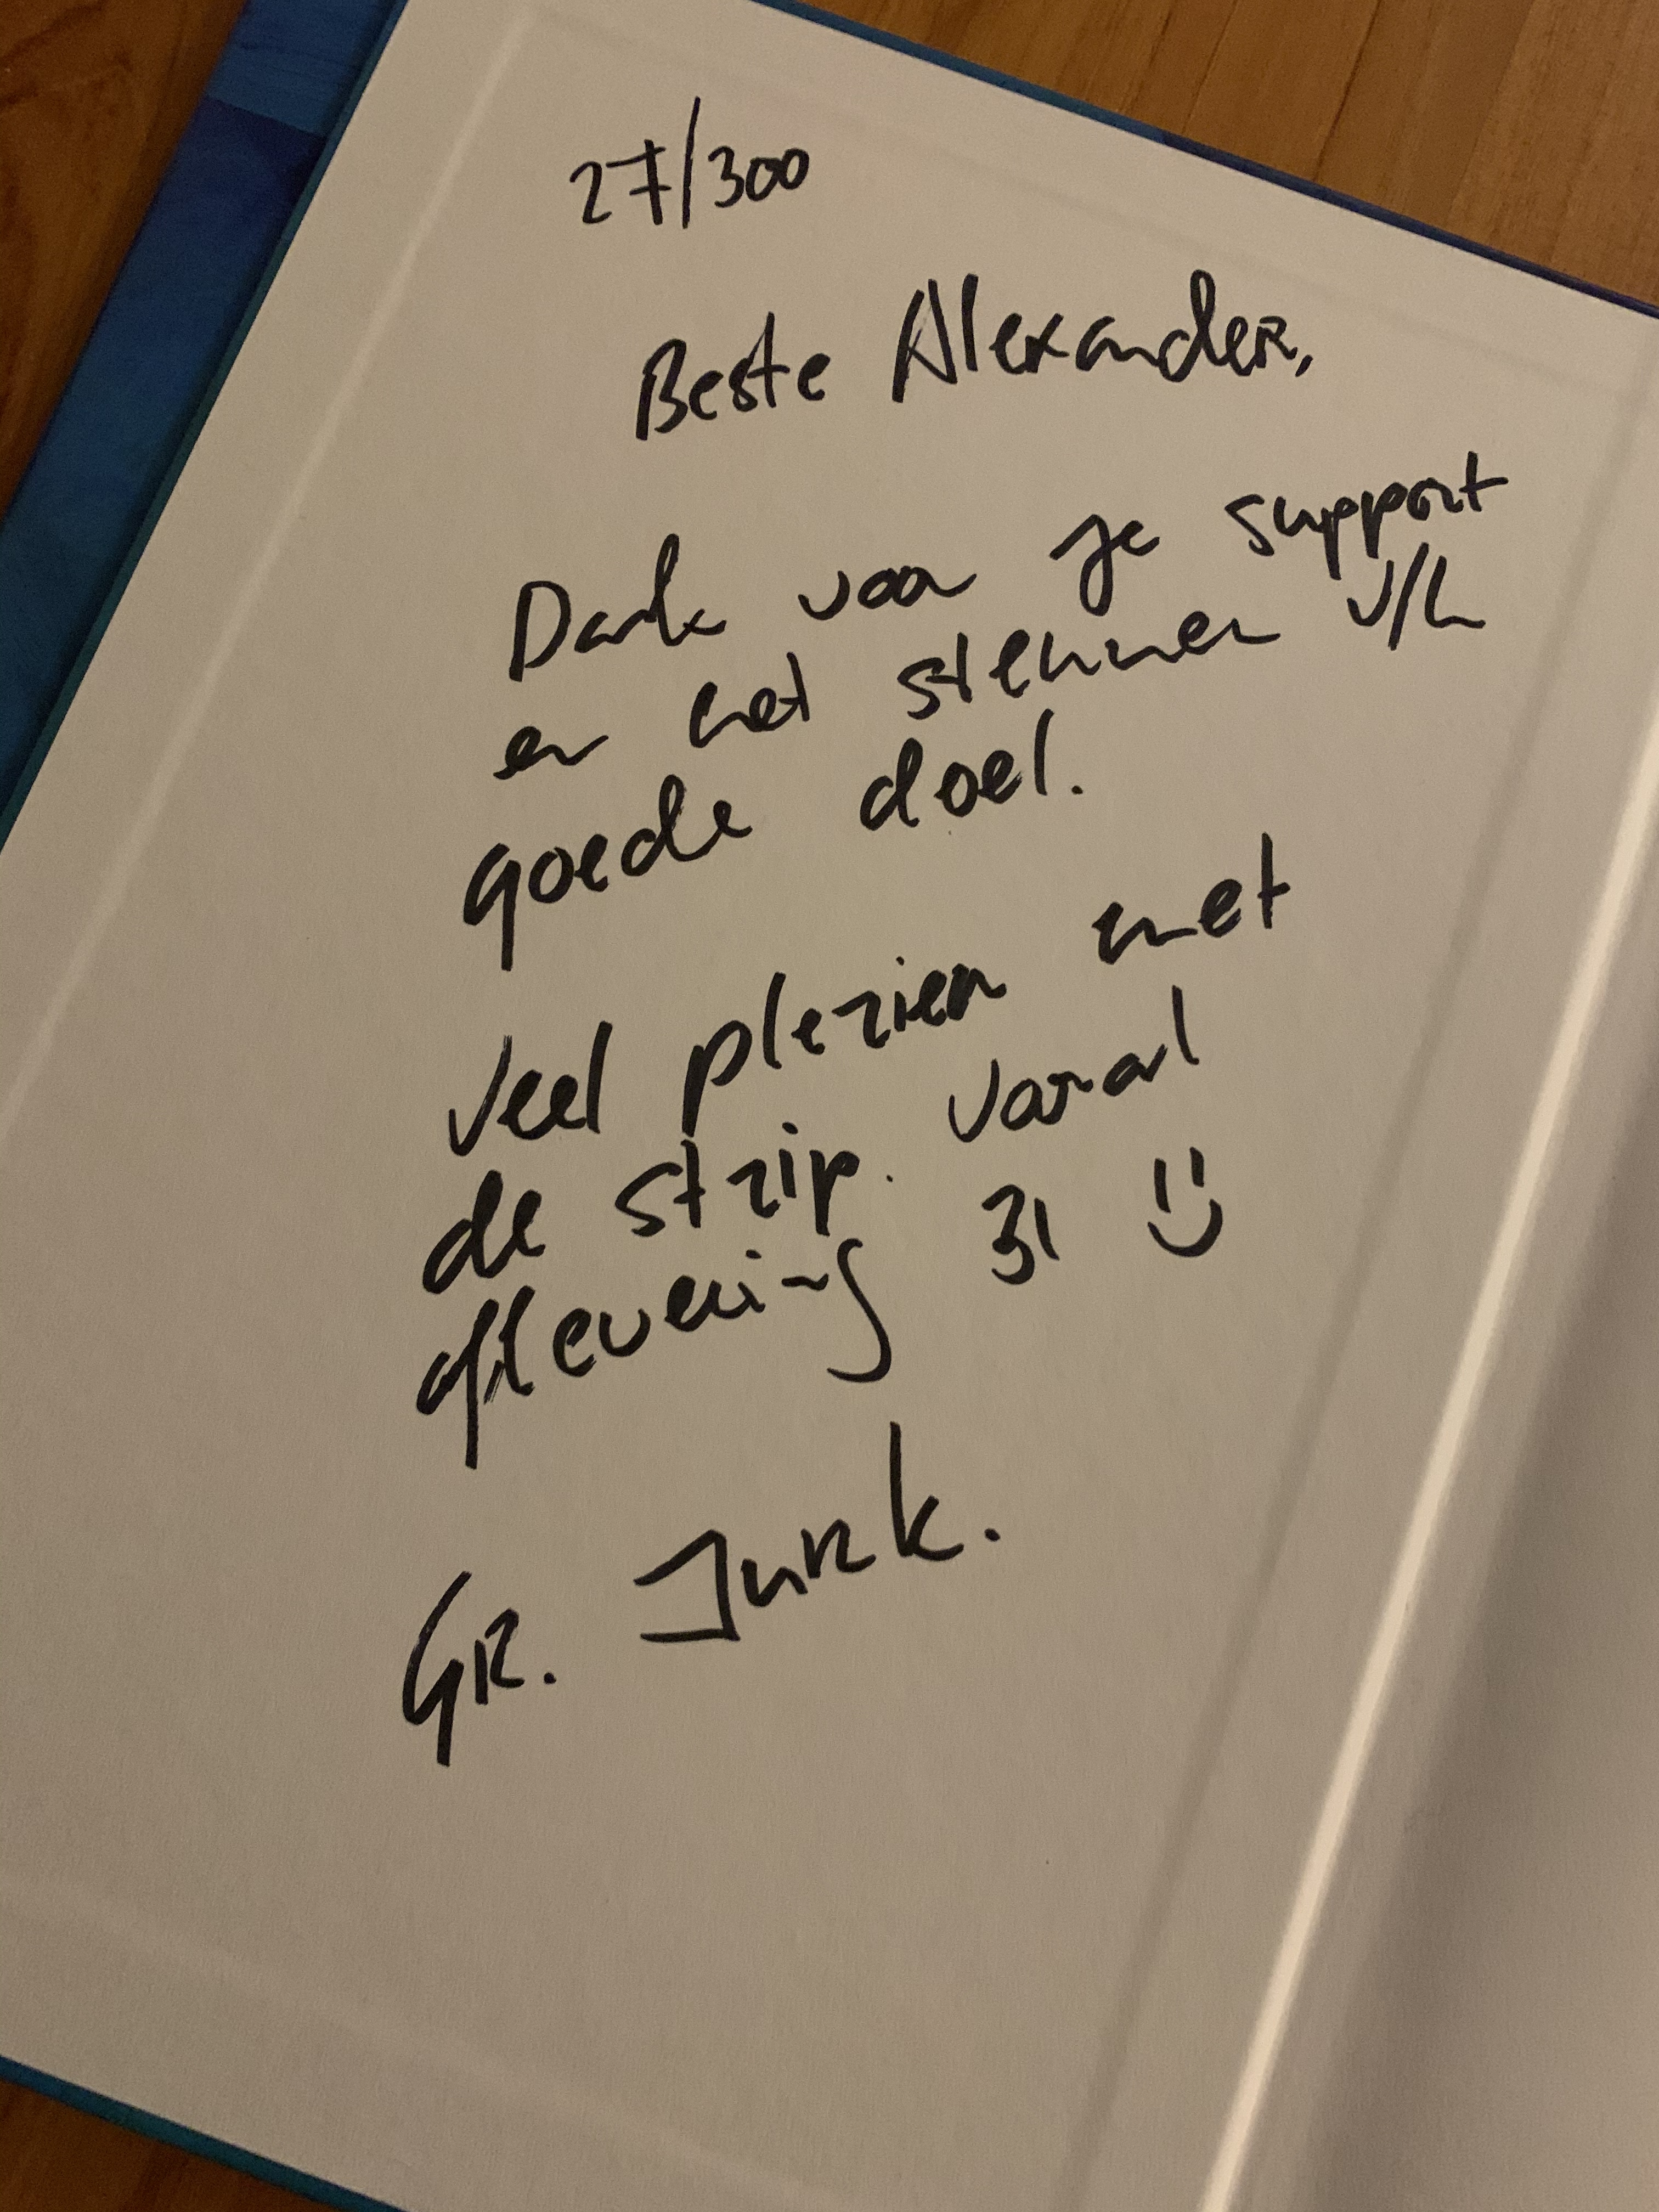 27/300
Beste Alexander,
Dank voor je support
en het steunen v/h
goede doel.
Veel plezier met
de strip. Vooral
aflevering 31 :)
GR. Jurk.